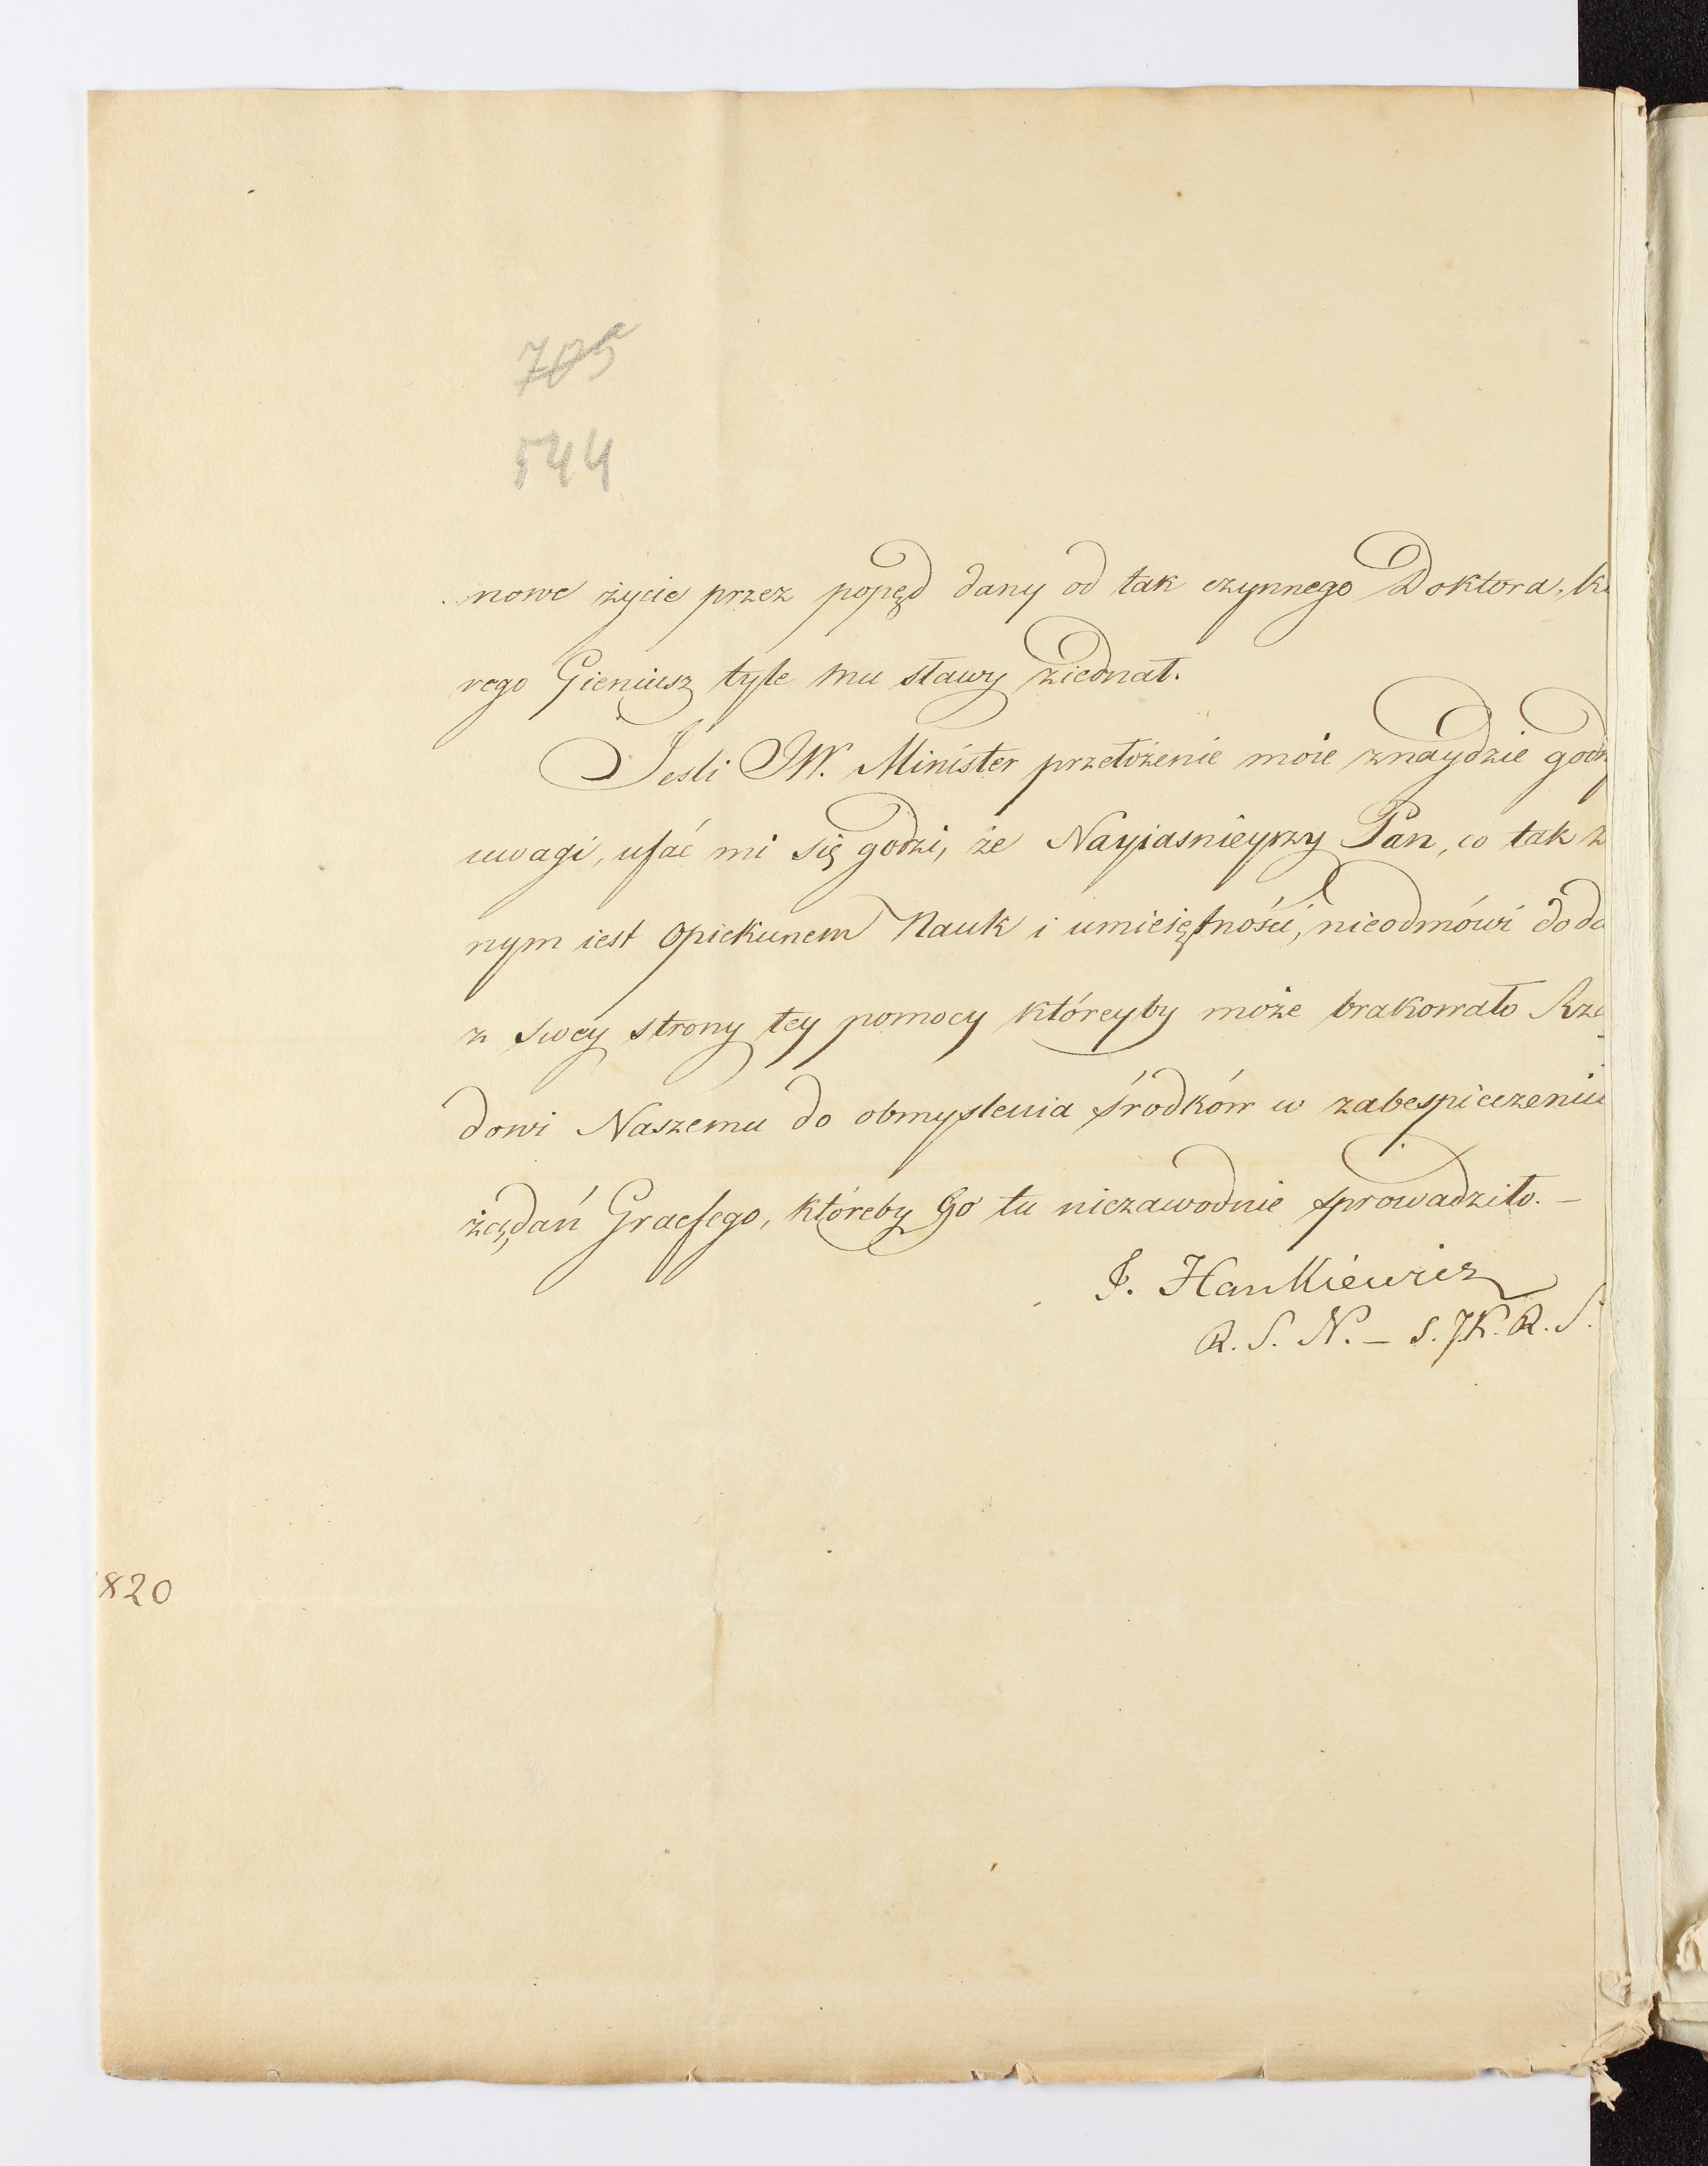 705
544
nowe życie przez popęd dany od tak czynnego Doktora, k
rego Gieniusz tyle mu sławy ziednał.
Jesli JW. Minister przełożenie moie znaydzie godn
uwagi, ufać mi się godzi, że Nayiasnieyszy Pan, co tak z
nym iest Opiekunem Nauk i umieiętności, nieodmówi doda
z swey strony tey pomocy któreyby może brakowało Rzą
dowi Naszemu do obmyslenia środków w zabespieczeniu
żądań Graefego, któreby Go tu niezawodnie sprowadziło. –
J. Hankiewicz
R. S. N. – S. J.K. R. S.
1820